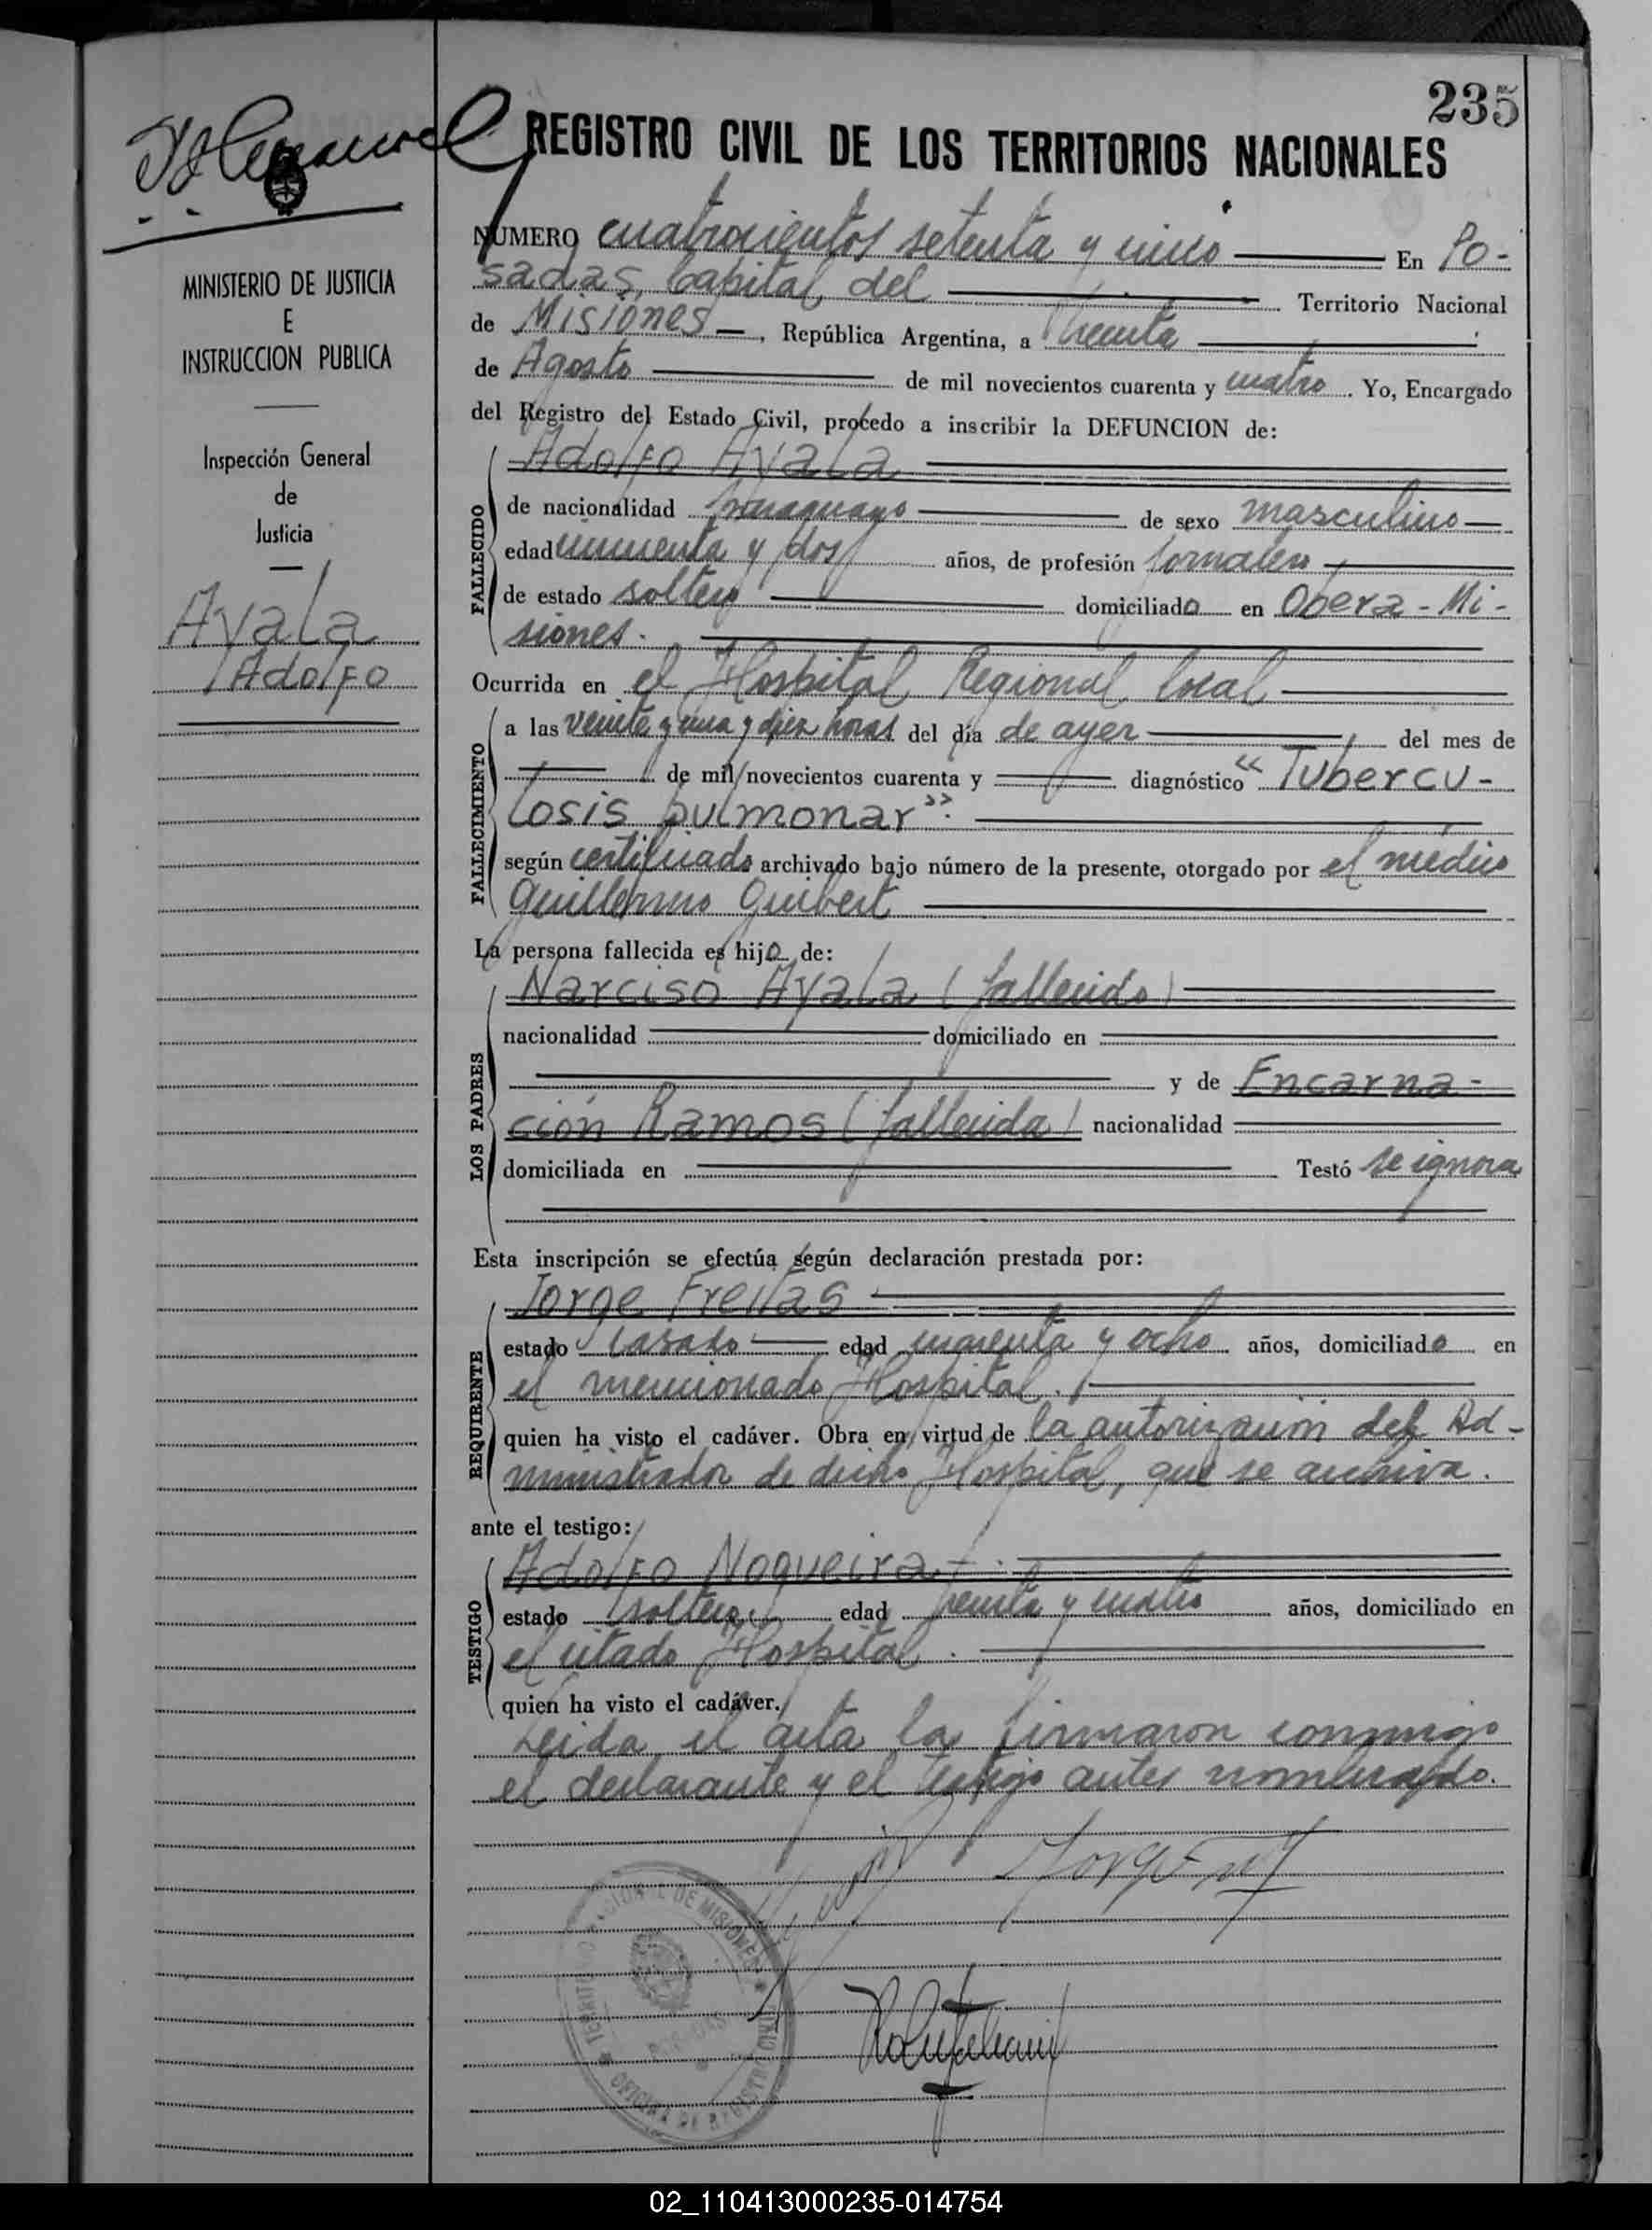 235
REGISTRO CIVIL DE LOS TERRITORIOS NACIONALES
MINISTERIO DE JUSTICIA
E
INSTRUCCION PUBLICA
Inspección General
de
Justicia
Ayala
Adolfo
NÚMERO cuatrocientos setenta y cinco En Po-
sadas, Capital del Territorio Nacional
de Misiones, República Argentina, a treinta
de Agosto de mil novecientos cuarenta y cuatro. Yo, Encargado
del Registro del Estado Civil, procedo a inscribir la DEFUNCION de:
Adolfo Ayala
FALLECIDO
de nacionalidad paraguayo de sexo masculino
edad cincuenta y dos años, de profesión jornalero
de estado soltero domiciliado en Oberá - Mi-
siones.
Ocurrida en el Hospital Regional local
FALLECIMIENTO
a las veinte y una y diez horas del día de ayer del mes de
de mil novecientos cuarenta y diagnóstico "Tubercu-
losis pulmonar".
según certificado archivado bajo número de la presente, otorgado por el médico
Guillermo Guibert
La persona fallecida es hijo de:
LOS PADRES
Narciso Ayala (fallecido)
nacionalidad domiciliado en
y de Encarna-
ción Ramos (fallecida) nacionalidad
domiciliada en Testó se ignora
Esta inscripción se efectúa según declaración prestada por:
REQUIRENTE
Jorge Freitas
estado casado edad cuarenta y ocho años, domiciliado en
el mencionado Hospital.
quien ha visto el cadáver. Obra en virtud de la autorización del Ad-
ministrador de dicho Hospital, que se archiva.
ante el testigo:
TESTIGO
Adolfo Nogueira
estado soltero edad treinta y cuatro años, domiciliado en
el citado Hospital.
quien ha visto el cadáver.
Leida el acta la firmaron conmigo
el declarante y el testigo antes nombrado.
02_110413000235-014754